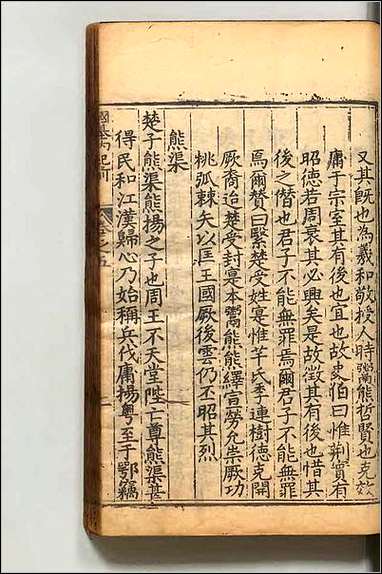 又其既也為羲和敬授人時鬻熊哲賢也克效
庸于宗室其有後也宜也故史伯曰惟荊實有
昭德若周衰其必興矣是故徵其有後也惜其
後之僭也君子不能無罪焉爾君子不能無罪
焉爾贊曰繄楚受姓寔惟芈氏季連樹德克開
厥裔迨楚受封寔本鬻熊熊繹宣勞允祟厥功
桃弧棘矢以匡王國厥後雲仍丕昭其烈
熊渠
楚子熊渠熊揚之子也周王不天堂陛亡尊熊渠甚
得民和江漢歸心乃始稱兵伐庸揚粵至于鄂竊